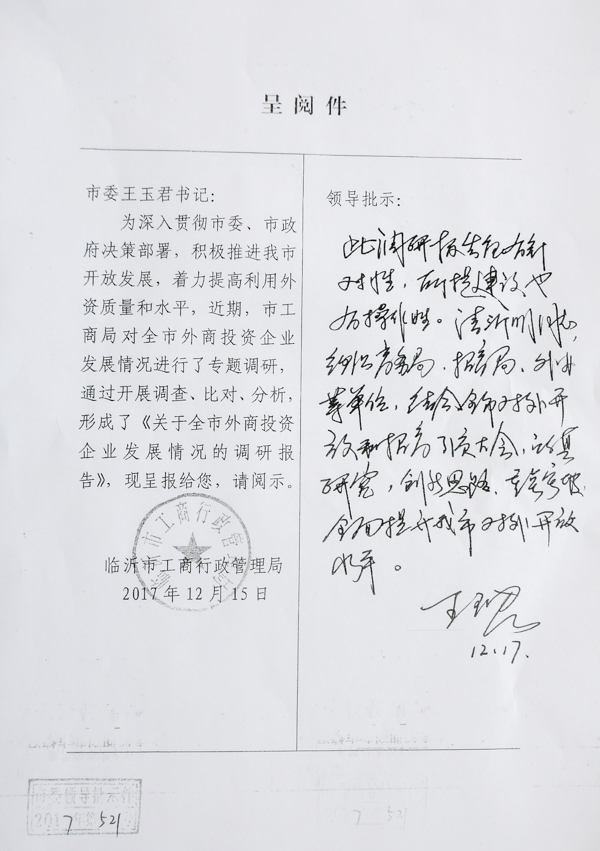 呈阅件
市委王玉君书记：
为深入贯彻市委、市政
府决策部署，积极推进我市
开放发展，着力提高利用外
资质量和水平，近期，市工
商局对全市外商投资企业
发展情况进行了专题调研，
通过开展调查、比对、分析，
形成了《关于全市外商投资
企业发展情况的调研报
告》，现呈报给您，请阅示。
临沂市工商行政管理局
2017年12月15日
临沂市工商行政管理局
领导批示：
此调研报告很有针
对性，所提建议也
有操作性。请沂明同志，
组织商务局、招商局、外办
等单位，结合全市对外开
放和招商引资大会，认真
研究，创新思路，
全面提升我市对外开放
水平。
王玉君
12.17.
7 521